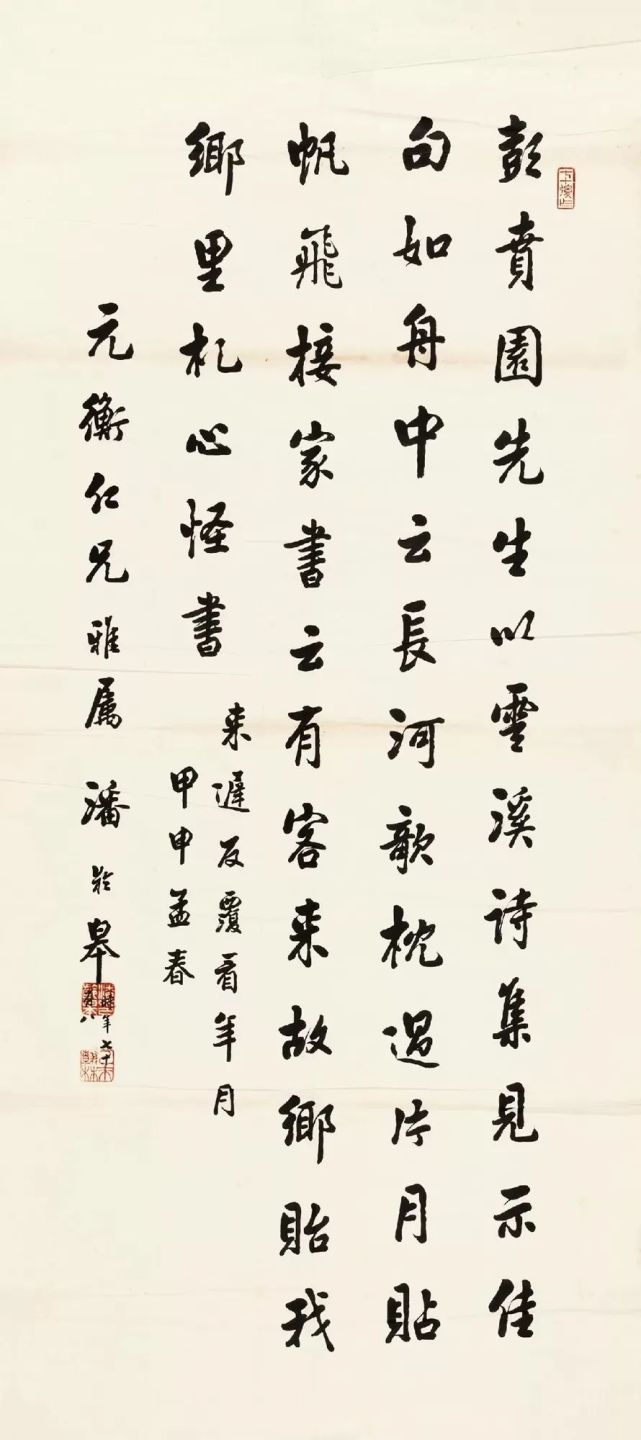 彭賁園先生以雪溪詩集見示佳
句如舟中云長河欹枕過片月貼
帆飛接家書云有客来故鄉貽我
鄉里札心怪書
来遲反覆看年月
甲申孟春
元衡仁兄雅属 潘齡皋
時年七十八